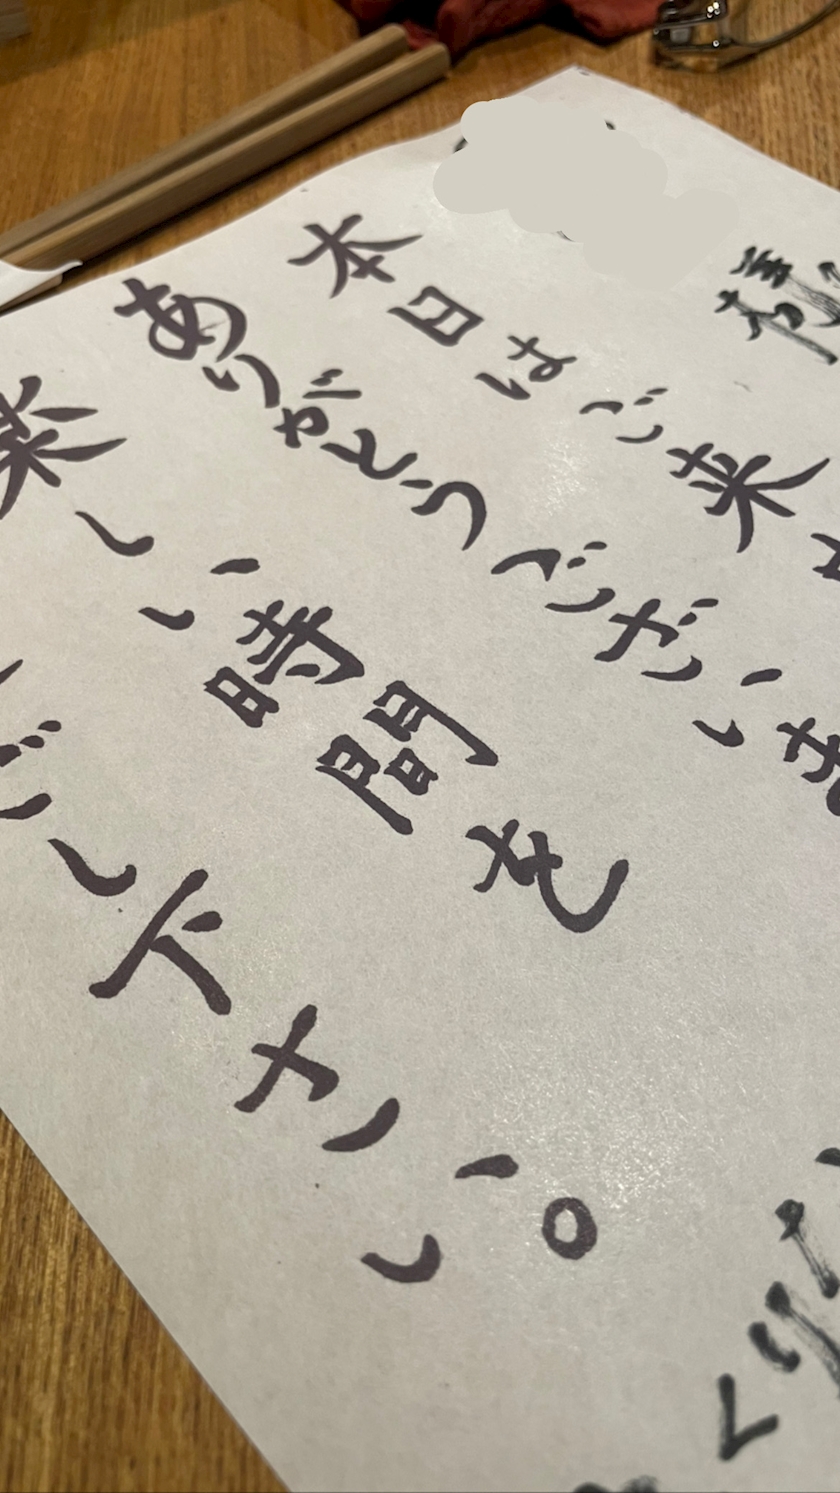 様
本日はご来
ありがとうございま
楽しい時間を
ごし下さい。